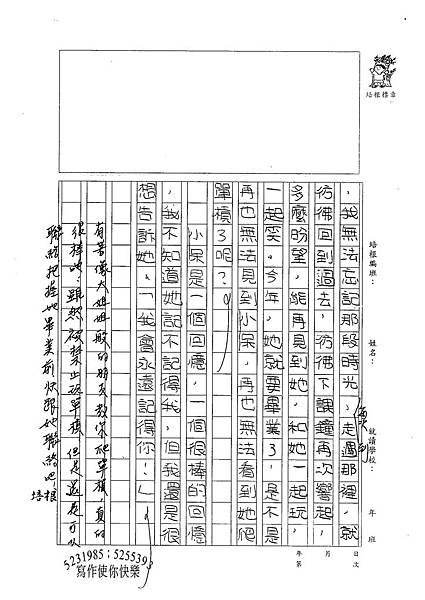 培根標章
培根編班：
姓名：
就讀學校：
年 班
，我無法忘記那段時光，走過那裡，就
彷彿回到過去，彷彿下課鐘再次響起，
多麼盼望，能再見到她，和她一起玩，
一起笑。今年，她就要畢業了，是不是
再也無法見到小呆，再也無法看到她爬
單槓了呢？
小呆是一個回憶，一個很棒的回憶
，我不知道她記不記得我，但我還是很
想告訴她，「我會永遠記得你！」
有著像大姐姐般的朋友教你爬單槓，真的
很棒吔！雖然被禁止玩單槓，但是還是可以
聯絡，把握她畢業前快跟她聯絡吧！
培根
月 日
年 第 次
5231985；5255393
寫作使你快樂